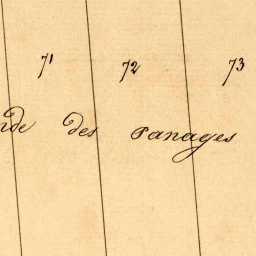 71 72 73
nde des Panages